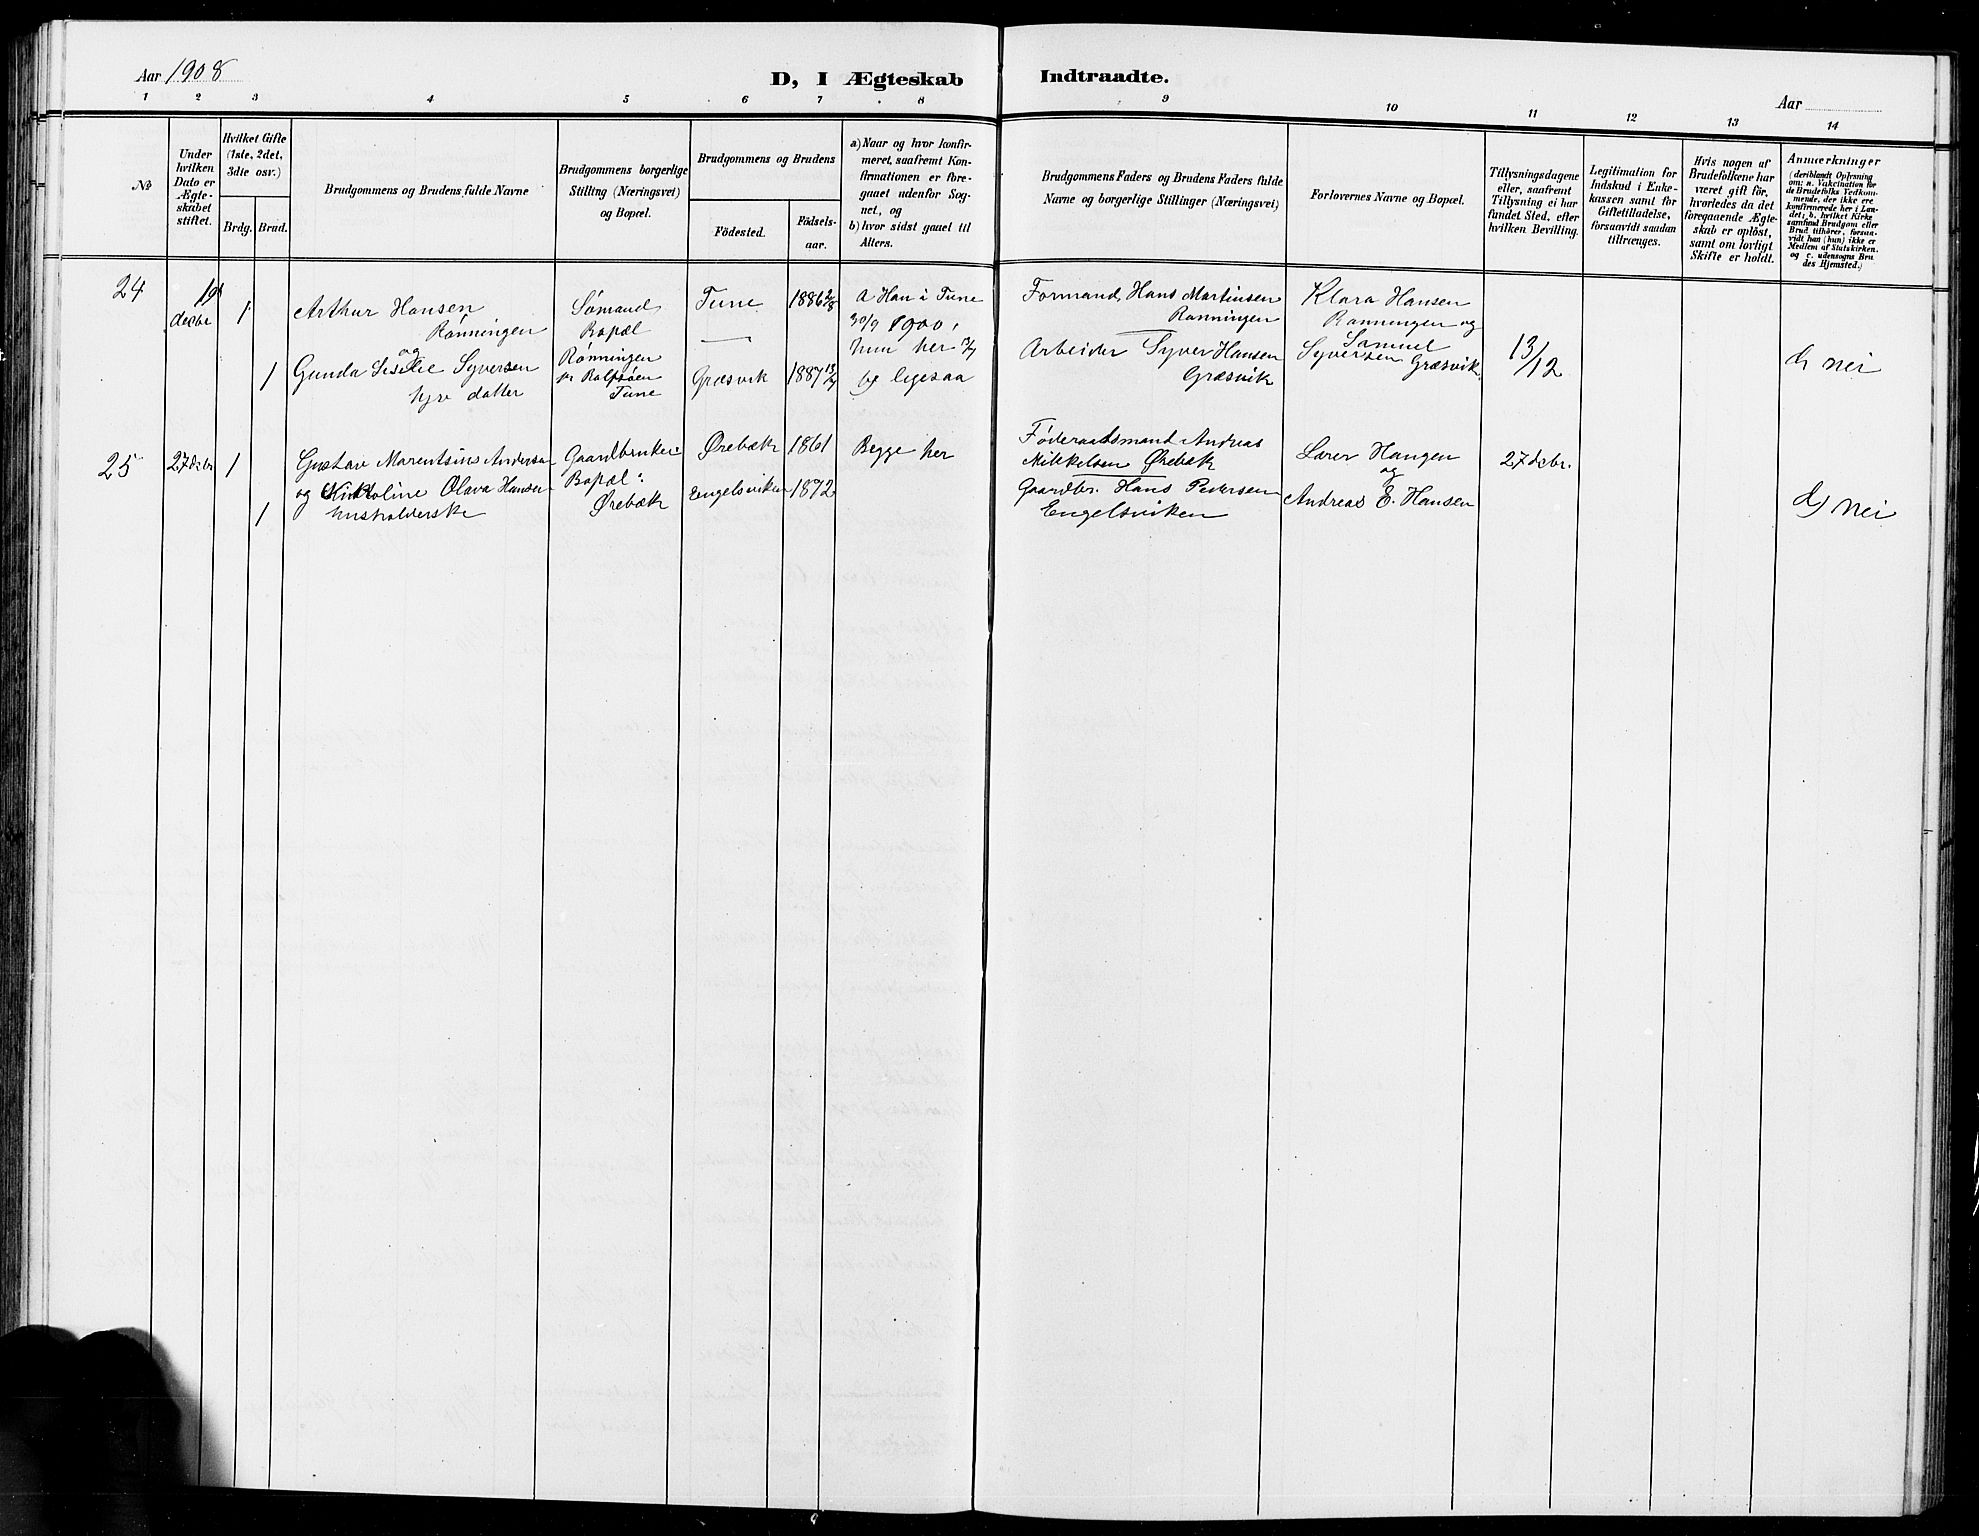 Aar 1908
D, I Ægteskab
Indtraadte.
Aar
1 2 3 4 5 6 7 8
9 10 11 12 13 14
No
Under
hvilken
Dato er
Ægte-
skabet
stiftet.
Hvilket Gifte
(1ste, 2det,
3die osv.)
Brdg. Brud.
Brudgommens og Brudens fulde Navne
Brudgommens borgerlige
Stilling (Næringsvei)
og Bopæl.
Brudgommens og Brudens
Födested.
Födsels-
aar.
a) Naar og hvor konfir-
meret, saafremt Kon-
firmationen er fore-
gaaet udenfor Sog-
net, og
b) hvor sidst gaaet til
Alters.
Brudgommens Faders og Brudens Faders fulde
Navne og borgerlige Stillinger (Næringsvei)
Forlovernes Navne og Bopæl.
Tillysningsdagene
eller, saafremt
Tillysning ei har
fundet Sted, efter
hvilken Bevilling.
Legitimation for
Indskud i Enke-
kassen samt for
Giftetilladelse,
forsaavidt saadan
tiltrænges.
Hvis nogen af
Brudefolkene har
været gift för,
hvorledes da det
foregaaende Ægte-
skab er oplöst,
samt om lovligt
Skifte er holdt.
Anmærkninger
(deriblandt Oplysning
om: a. Vakcination for
de Brudefolks Vedkom-
mende, der ikke ere
konfirmerede her i Lan-
det; b. hvilket Kirke
samfund Brudgom eller
Brud tilhörer, forsaa-
vidt han (hun) ikke er
Medlem af Statskirken.
og c. udensogns Bru
des Hjemsted.)
24
19
decbr
1
Arthur Hansen
Rønningen
og
1
Gunda Sisilie Syversen
hjv datter
Sømand
Bopæl
Rønningen
pr Rolfsøen
Tune
Tune
Græsvik
1886 2/8
1887 13/7
a Han i Tune
30/9 1900,
hun her
b ligesaa
Formand, Hans Martinsen
Rønningen
Arbeider Syver Hansen
Græsvik
Klara Hansen
Rønningen og
Samuel
Syversen Græsvik.
13/12
c) nei
25
27 decbr.
1
Gustav Marentsius Anderse
og Olava Hansen
1
husholderske
Gaardbruker:
Bopæl:
Ørebæk
Ørebæk
Engelsviken
1861
1872
Begge her
Føderaadsmand Andreas
Mikkelsen Ørebæk
Gaardbr. Hans Pedersen
Engelsviken
Lærer Haugen
og
Andreas E. Hansen
27 decbr.
c) nei